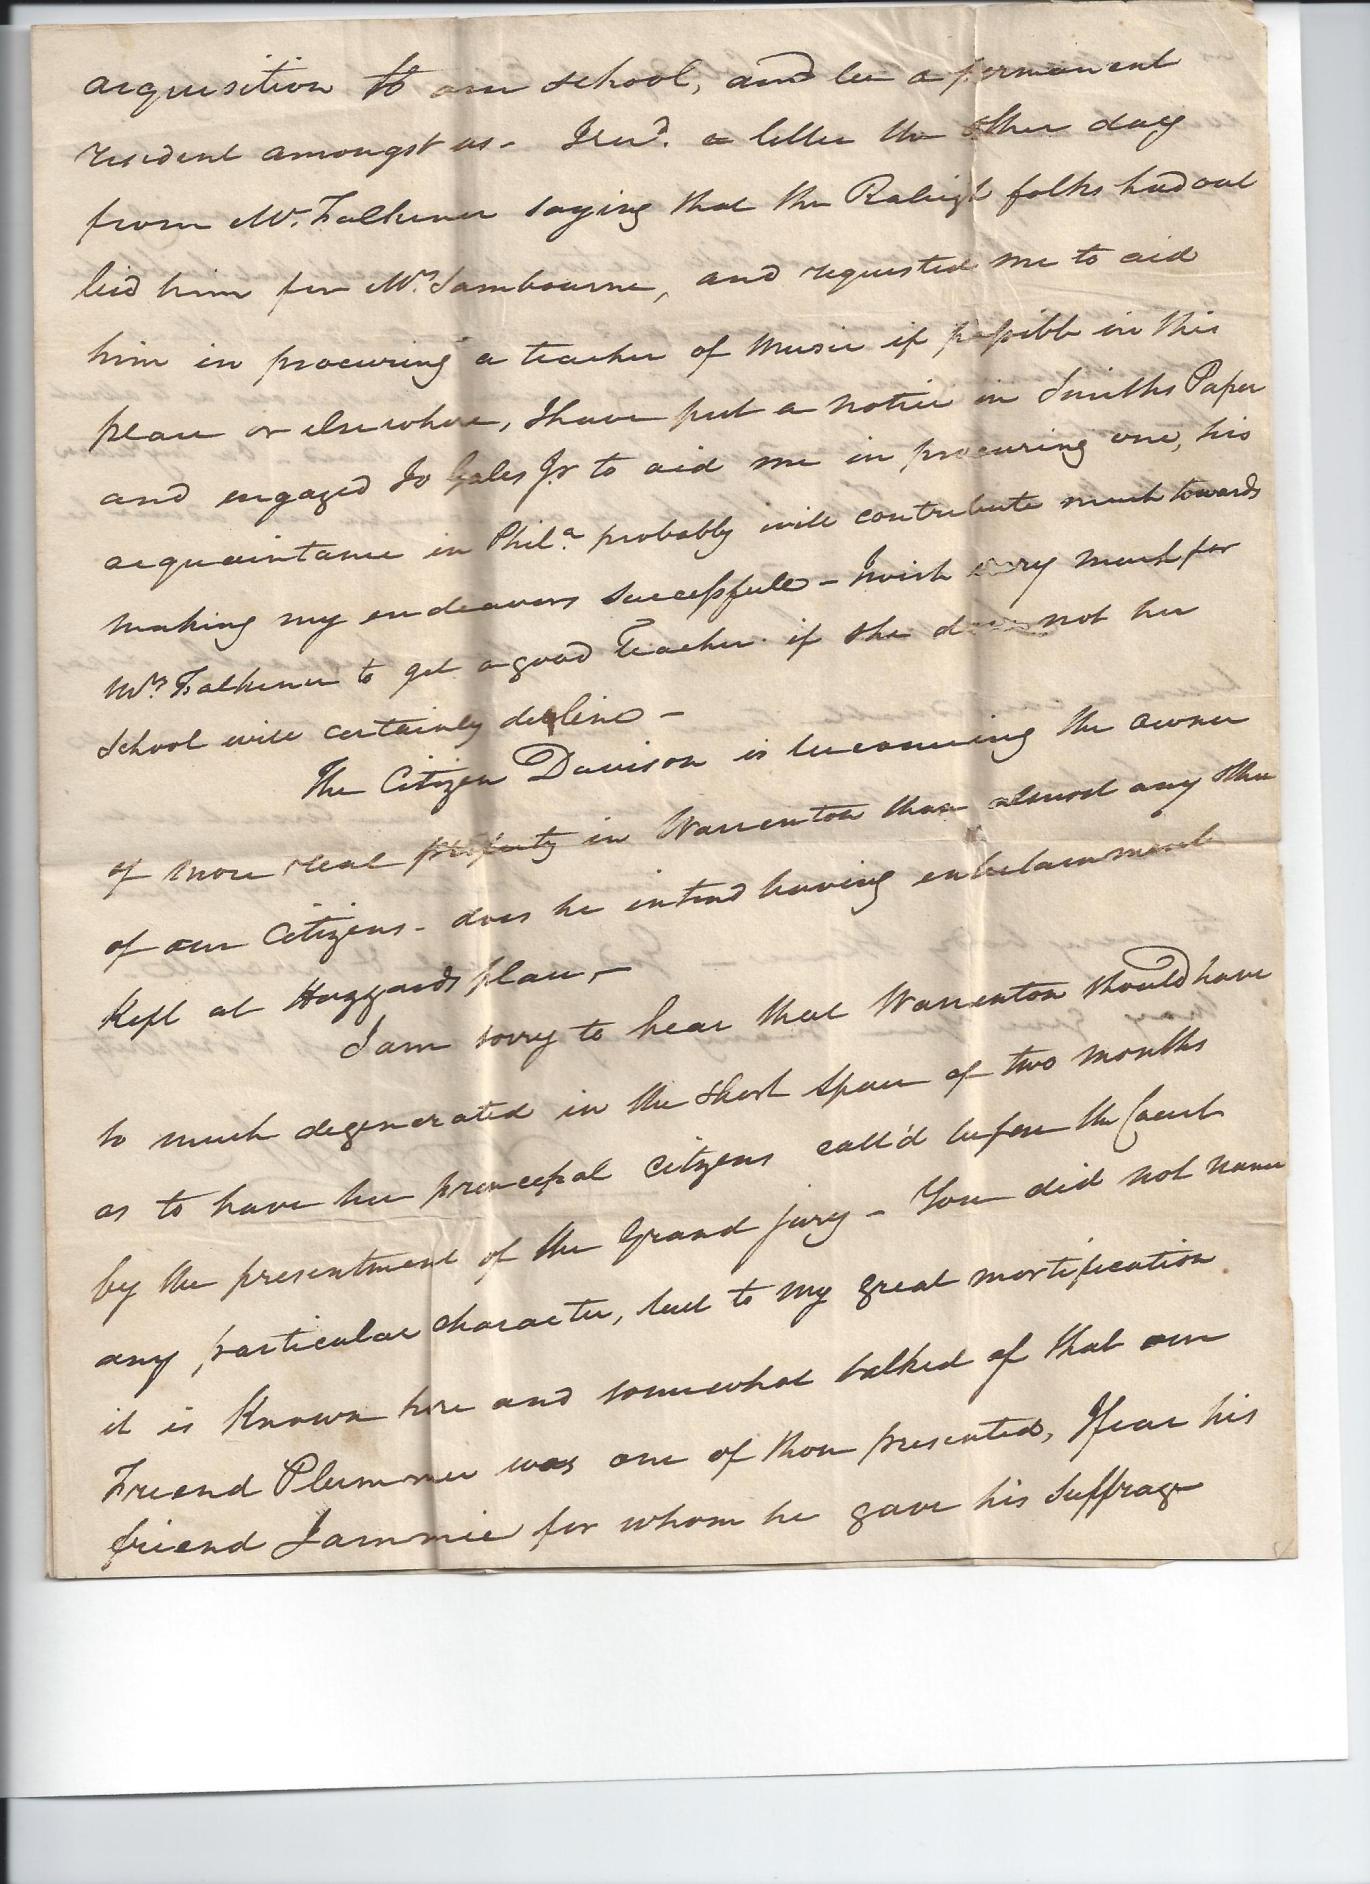 acquisition to our school, and be a permanent
resident amongst us - I recd. a letter the other day
from Mr. Falkener saying that the Raleigh folks had out
bid him for Mrs Sambourne, and requested me to aid
him in procuring a teacher of Music if possible in this
place or elsewhere, I have put a notice in Smiths Paper
and engaged Jo Gales Jr to aid me in procuring one, his
acquaintance in Phila. probably will contribute much towards
making my endeavors successfull - I wish very much for
Mrs Falkener to get a good Teacher if she does not her
School will certainly decline -
The Citizen Davison is becoming the owner
of more real property in Warrenton than almost any other
of our Citizens - does he intend having entertainment
Kept at Haggards place, -
I am sorry to hear that Warrenton should have
so much degenerated in the short space of two months
as to have her principal Citizens call'd before the Court
by the presentment of the Grand jury - You did not name
any particular character, but to my great mortification
it is Known here and somewhat talked of that our
Friend Plummer was one of those presented, I fear his
friend Jammie for whom he gave his suffrage